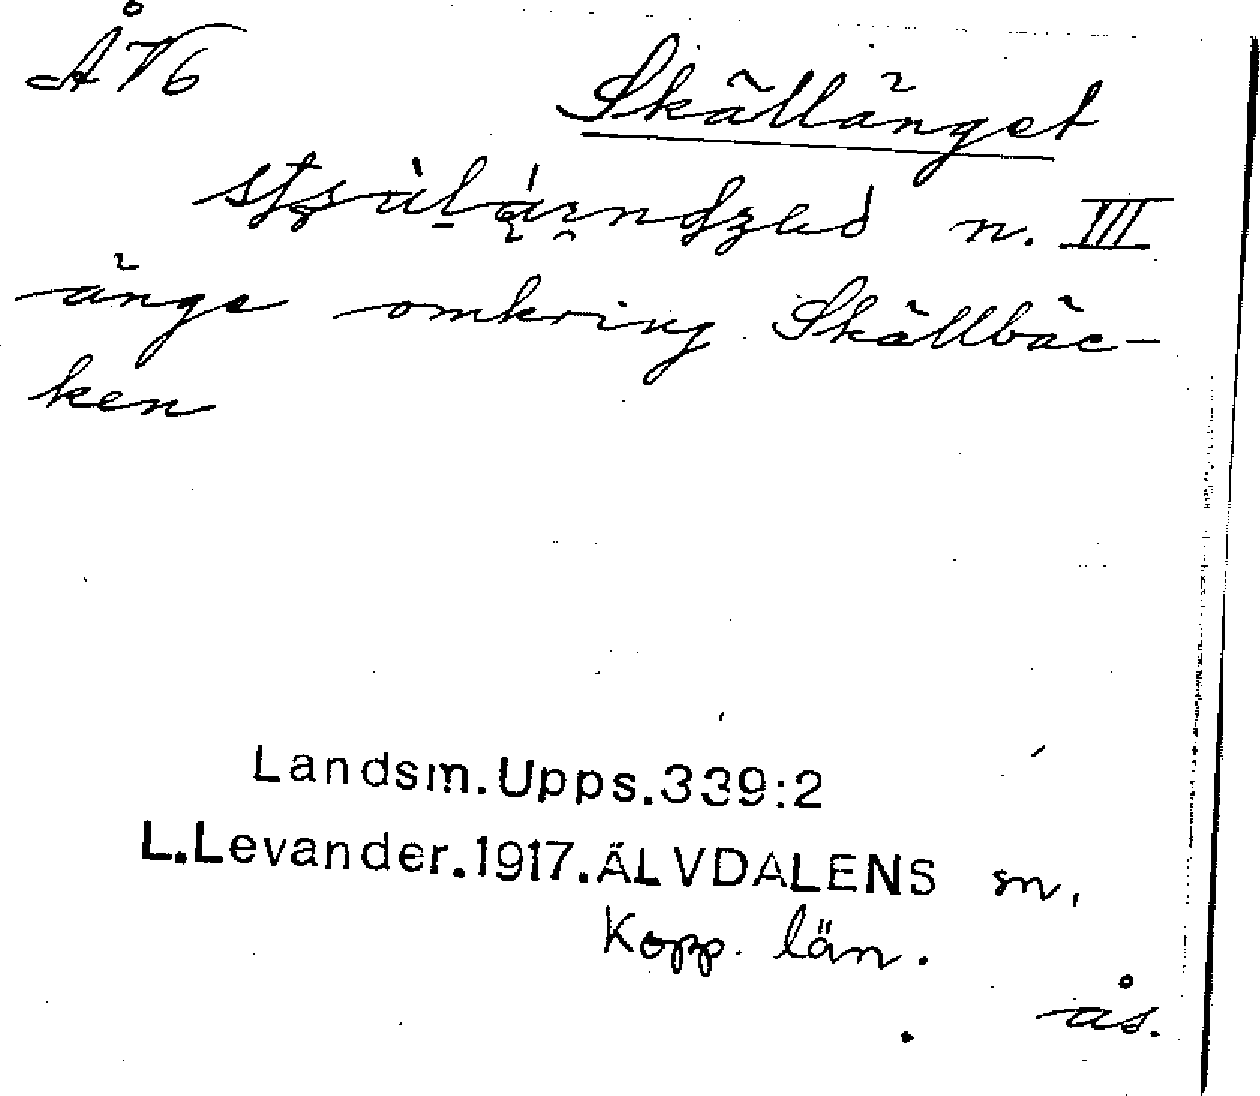 ÅV6
Skälländet
n. III
änge omkring Skällbäc-
ken
Landsm.Upps.339:2
L.Levander.1917.ÄLVDALENS sn.
Kopp. län.
ås.